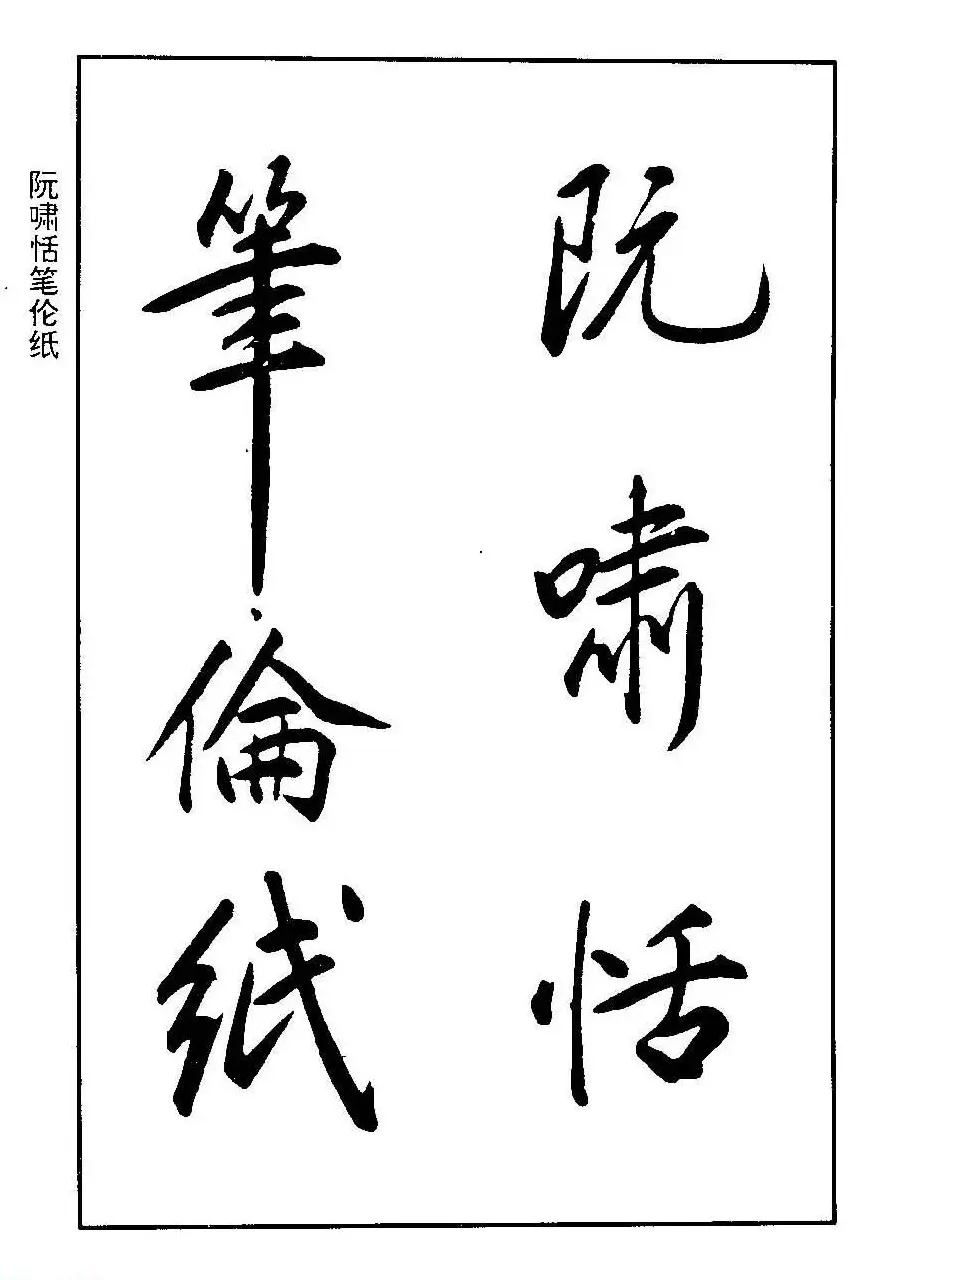 阮嘯恬
筆倫紙
阮啸恬笔伦纸